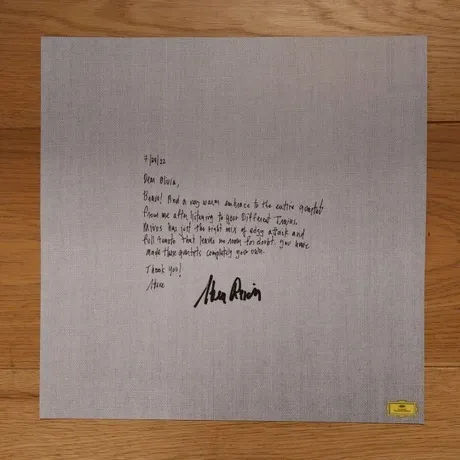 7/24/22
Dear Olivia,
Bravo! And a very warm embrace to the entire quartet
from me after listening to your Different Trains.
Mivos has just the right mix of edgy attack and
full sonority that leaves no room for doubt. You have
made these quartets completely your own.
Thank you!
Steve
Steve Reich